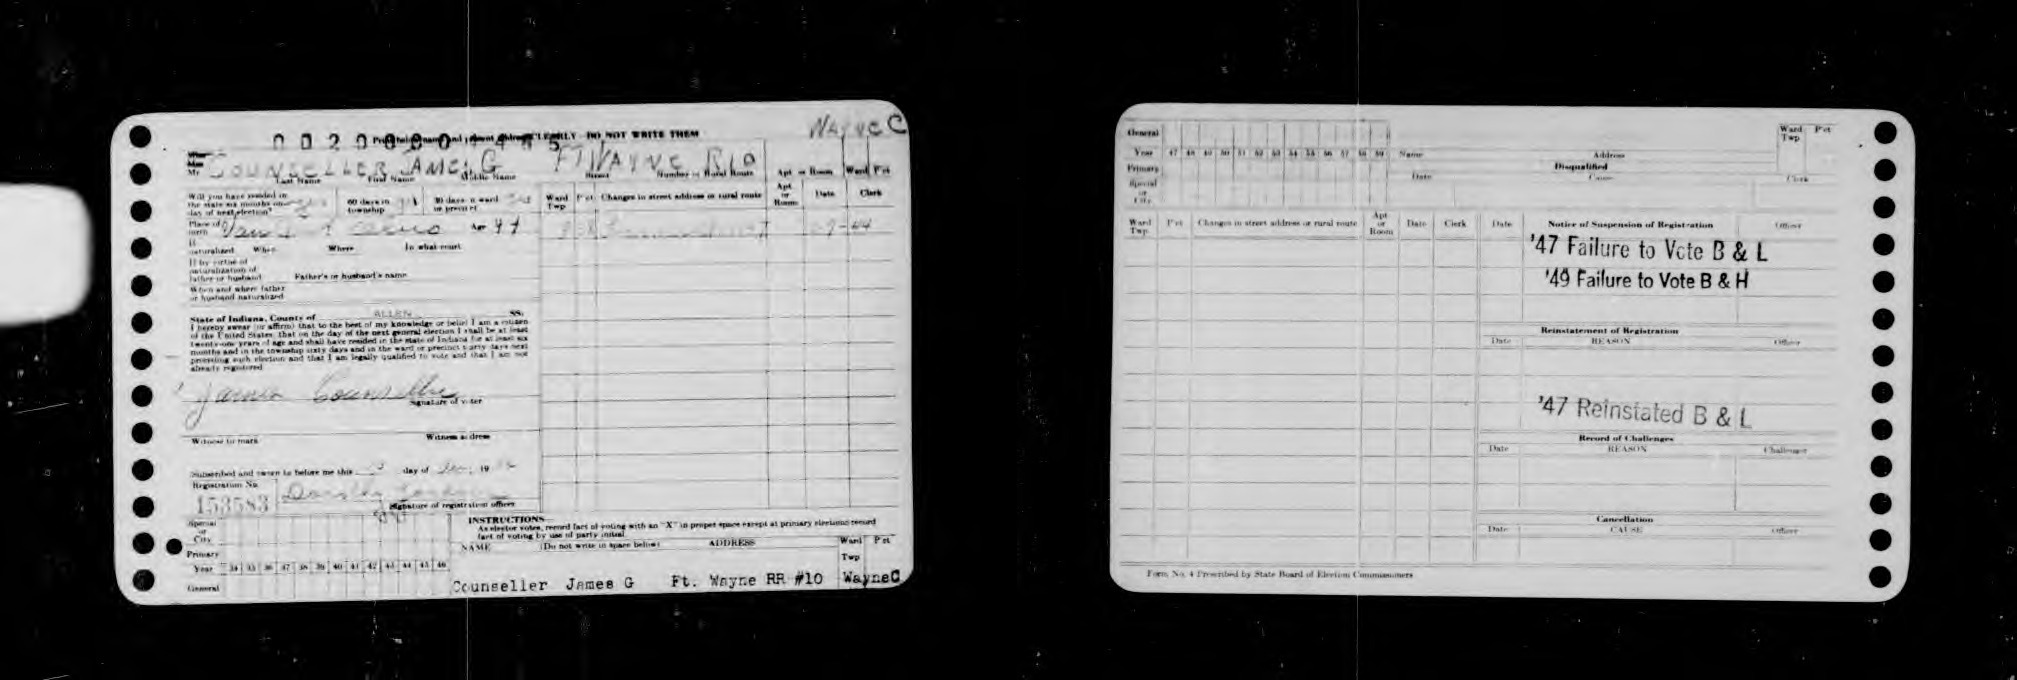 Print full name and present address CLEARLY - DO NOT WRITE THEM
WAYNE C
COUNSELLER JAMES G FT WAYNE R10
Mr
Last Name First Name Middle Name Street Number or Rural Route Apt or Room Ward Pct
Will you have resided in
the state six months on
day of next election?
60 days in
township
30 days in ward
or precinct
Place of
birth
Age
If
naturalized When Where In what court
If by virtue of
naturalization of
father or husband Father's or husband's name
When and where father
or husband naturalized
State of Indiana, County of ALLEN SS:
I hereby swear (or affirm) that to the best of my knowledge or belief I am a citizen
of the United States; that on the day of the next general election I shall be at least
twenty-one years of age and shall have resided in the state of Indiana for at least six
months and in the township sixty days and in the ward or precinct thirty days next
preceding such election and that I am legally qualified to vote and that I am not
already registered
James Counseller
Signature of voter
Witness to mark Witness address
Subscribed and sworn to before me this day of 19
Registration No.
153583 Dorothy
Signature of registration officer
Ward Twp Pct Changes in street address or rural route Apt or Room Date Clerk
-44
Special
or
City
Primary
Year 34 35 36 37 38 39 40 41 42 43 44 45 46
General
INSTRUCTIONS—
As elector votes, record fact of voting with an "X" in proper space except at primary elections record
fact of voting by use of party initial.
NAME (Do not write in space below) ADDRESS Ward Twp Pct
Counseller James G Ft. Wayne RR #10 WayneC
General
Year 47 48 49 50 51 52 53 54 55 56 57 58 59
Primary
Special
or
City
Name Address
Ward Twp Pct
Disqualified
Date Cause Clerk
Ward Twp. Pct Changes in street address or rural route Apt or Room Date Clerk
Date Notice of Suspension of Registration Officer
'47 Failure to Vote B & L
'49 Failure to Vote B & H
Reinstatement of Registration
Date REASON Officer
'47 Reinstated B & L
Record of Challenges
Date REASON Challenger
Cancellation
Date CAUSE Officer
Form No. 4 Prescribed by State Board of Election Commissioners